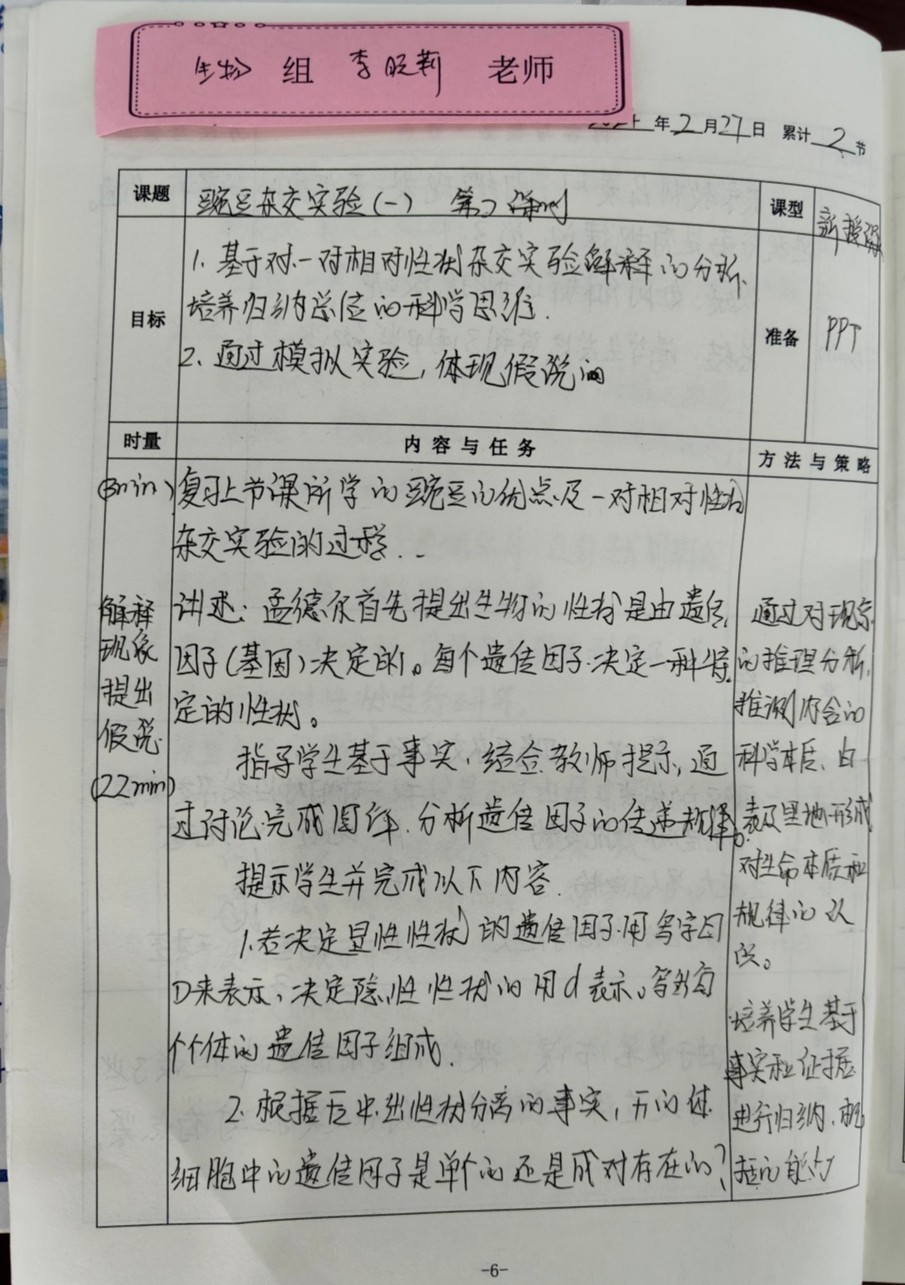 生物 组 李晓莉 老师
年2月27日 累计 2 节
课题 豌豆杂交实验(一) 第2课时 课型 新授课
目标
1. 基于对一对相对性状杂交实验解释的分析、
培养归纳总结的科学思维.
2. 通过模拟实验, 体现假说的
准备 PPT
时量 内容与任务 方法与策略
(3min) 复习上节课所学的豌豆的优点及一对相对性状
杂交实验的过程...
解释
现象
提出
假说
(22min)
讲述: 孟德尔首先提出生物的性状是由遗传
因子(基因)决定的。每个遗传因子决定一种特
定的性状。
指导学生基于事实, 结合教师提示, 通
过讨论完成图解. 分析遗传因子的传递规律。
提示学生并完成以下内容.
1. 若决定显性性状的遗传因子用字母
D来表示, 决定隐性性状的用d表示。写出每
个个体的遗传因子组成.
2. 根据F₂中出性状分离的事实, F₁的体
细胞中的遗传因子是单个的还是成对存在的?
通过对现象
的推理分析,
推测内含的
科学本质、由
表及里地形成
对生命本质和
规律的认
识。
培养学生基于
事实和证据
进行归纳、概
括的能力
-6-